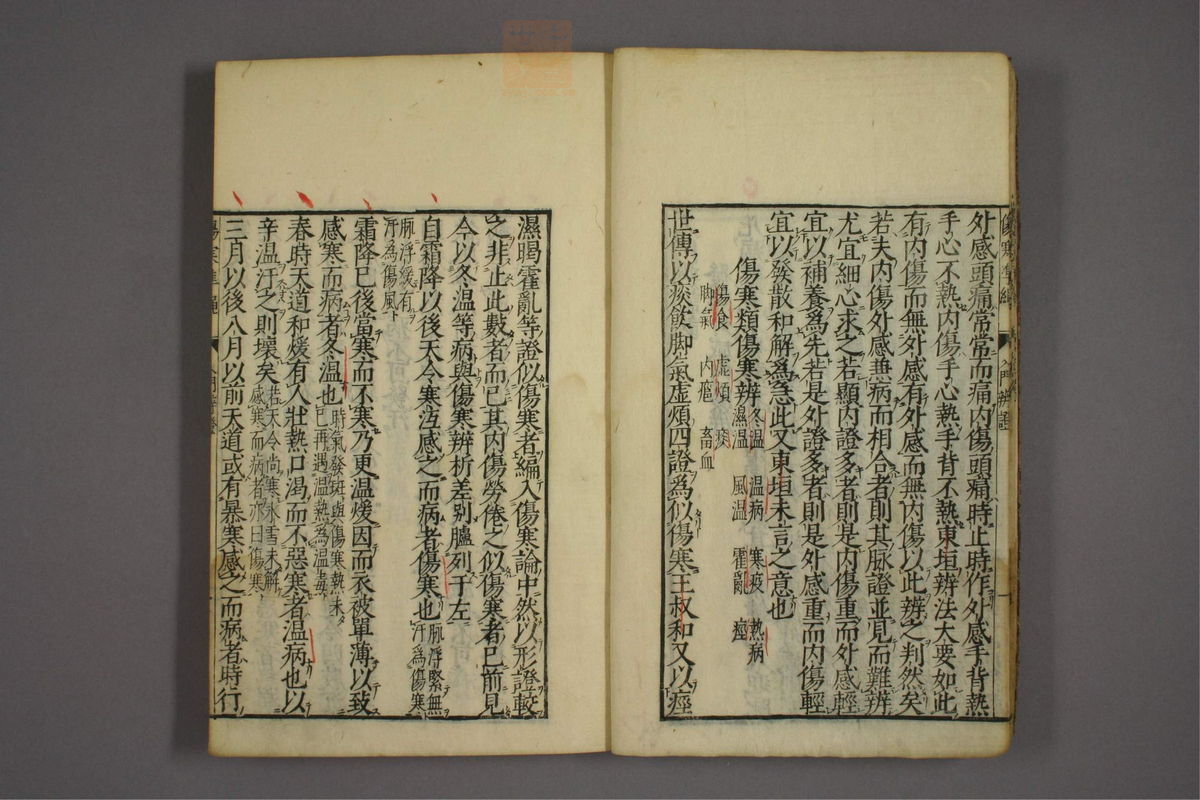 外感頭痛常常而痛内傷頭痛時止時作外感手背熱
手心不熱内傷手心熱手背不熱東垣辨法大要如此
有内傷而無外感有外感而無内傷以此辨之判然矣
若夫内傷外感兼病而相合者則其脉證並見而難辨
尤宜細心求之若顯内證多者則是内傷重而外感輕
宜以補養爲先若是外證多者則是外感重而内傷輕
宜以發散和解爲急此又東垣未言之意也
傷寒類傷寒辨 冬温 温病 寒疫 熱病
濕温 風温 霍亂 痙
傷食 虚煩 痰
脚氣 内癰 畜血
世傳以痰飲脚氣虚煩四證為似傷寒王叔和又以痙
濕暍霍亂等證似傷寒者編入傷寒論中然以形證較
之非止此數者而已其内傷勞倦之似傷寒者已前見
今以冬温等病與傷寒辨析差别臚列于左
自霜降以後天令寒沍感之而病者傷寒也 脉浮緊無汗爲傷寒
脉浮緩有汗爲傷風
霜降已後當寒而不寒乃更温煖因而衣被單薄以致
感寒而病者冬温也 時氣發斑與傷寒熱未
已再遇温熱爲温毒
春時天道和煖有人壯熱口渴而不惡寒者温病也以
辛温汗之則壞矣 若天令尚寒氷雪未解
感寒而病者亦曰傷寒
三月以後八月以前天道或有暴寒感之而病者時行